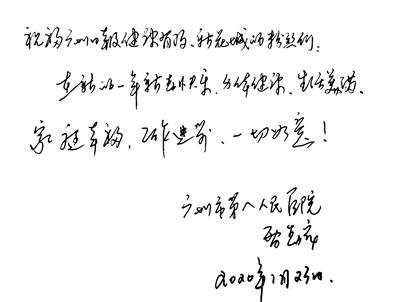 祝福广州日报健康有约、新花城的粉丝们:
在新的一年新春快乐、身体健康、生活美满、
家庭幸福、工作进步、一切如意!
广州市第八人民医院
2020年1月23日.